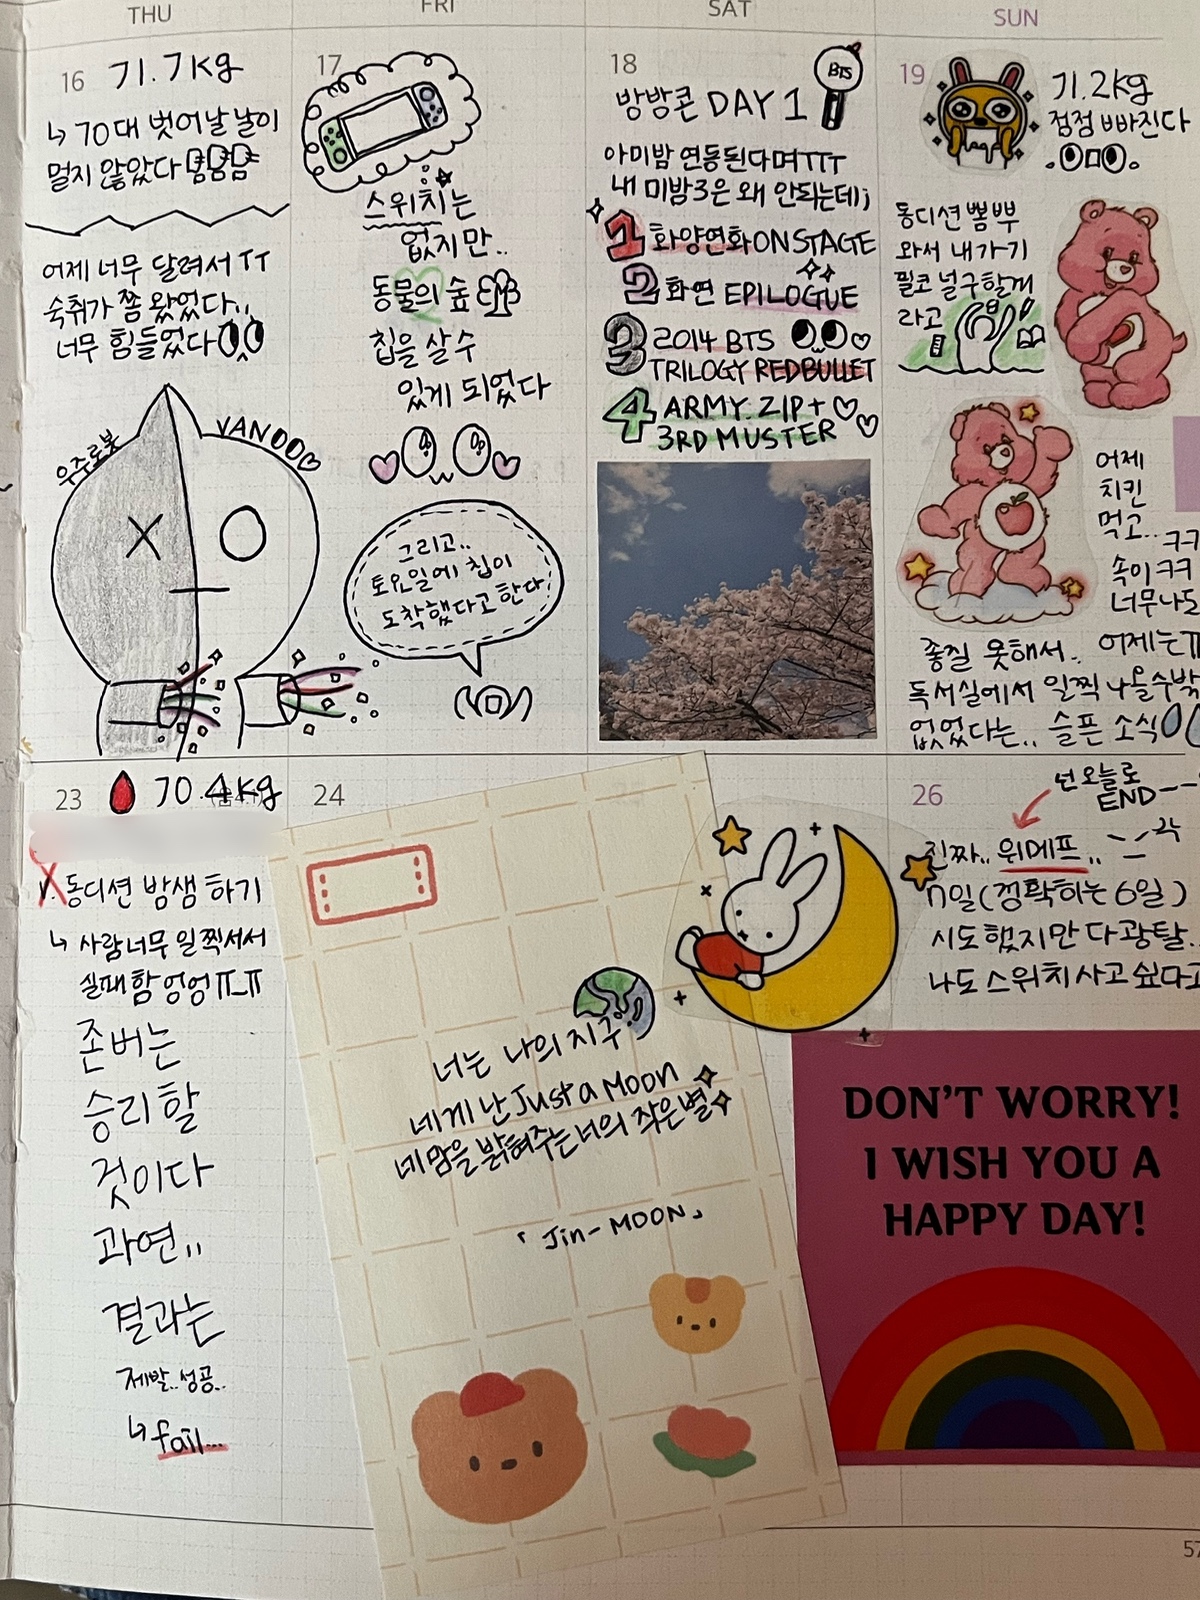 THU
FRI
SAT
SUN
16 71.7kg
↳ 70대 벗어날 날이
멀지 않았다
어제 너무 달려서 TT
숙취가 쫌 왔었다..
너무 힘들었다
우주로봇
VAN
17
스위치는
없지만..
동물의 숲
칩을 살 수
있게 되었다
그리고..
토요일에 칩이
도착했다고 한다.
18
방방콘 DAY 1
BTS
아미밤 연동된다며TTT
내 미밤3은 왜 안되는데;
1 화양연화 ON STAGE
2 화연 EPILOGUE
3 2014 BTS
TRILOGY RED BULLET
4 ARMY.ZIP+
3RD MUSTER
19
71.2kg
점점 빠진다
동디션 뽐뿌
와서 내가 기
필코 널 구할께
라고
어제
치킨
먹고..
속이 ㅋㅋ
너무나도
좋질 못해서.. 어제는
독서실에서 일찍 나올수밖
없었다는.. 슬픈 소식
23 70.4kg
1. 동디션 밤샘 하기
↳ 사람너무 일찍서서
실패함 엉엉 ㅠ_ㅠ
존버는
승리할
것이다
과연..
결과는
제발..성공..
↳ fail...
24
너는 나의 지구
네게 난 Just a Moon
네 맘을 밝혀주는 너의 작은 별
「Jin-MOON」
26
넌 오늘로
END--
진짜.. 위메프..
n일(정확하는 6일)
시도 했지만 다 광탈..
나도 스위치 사고 싶다고
DON'T WORRY!
I WISH YOU A
HAPPY DAY!
57